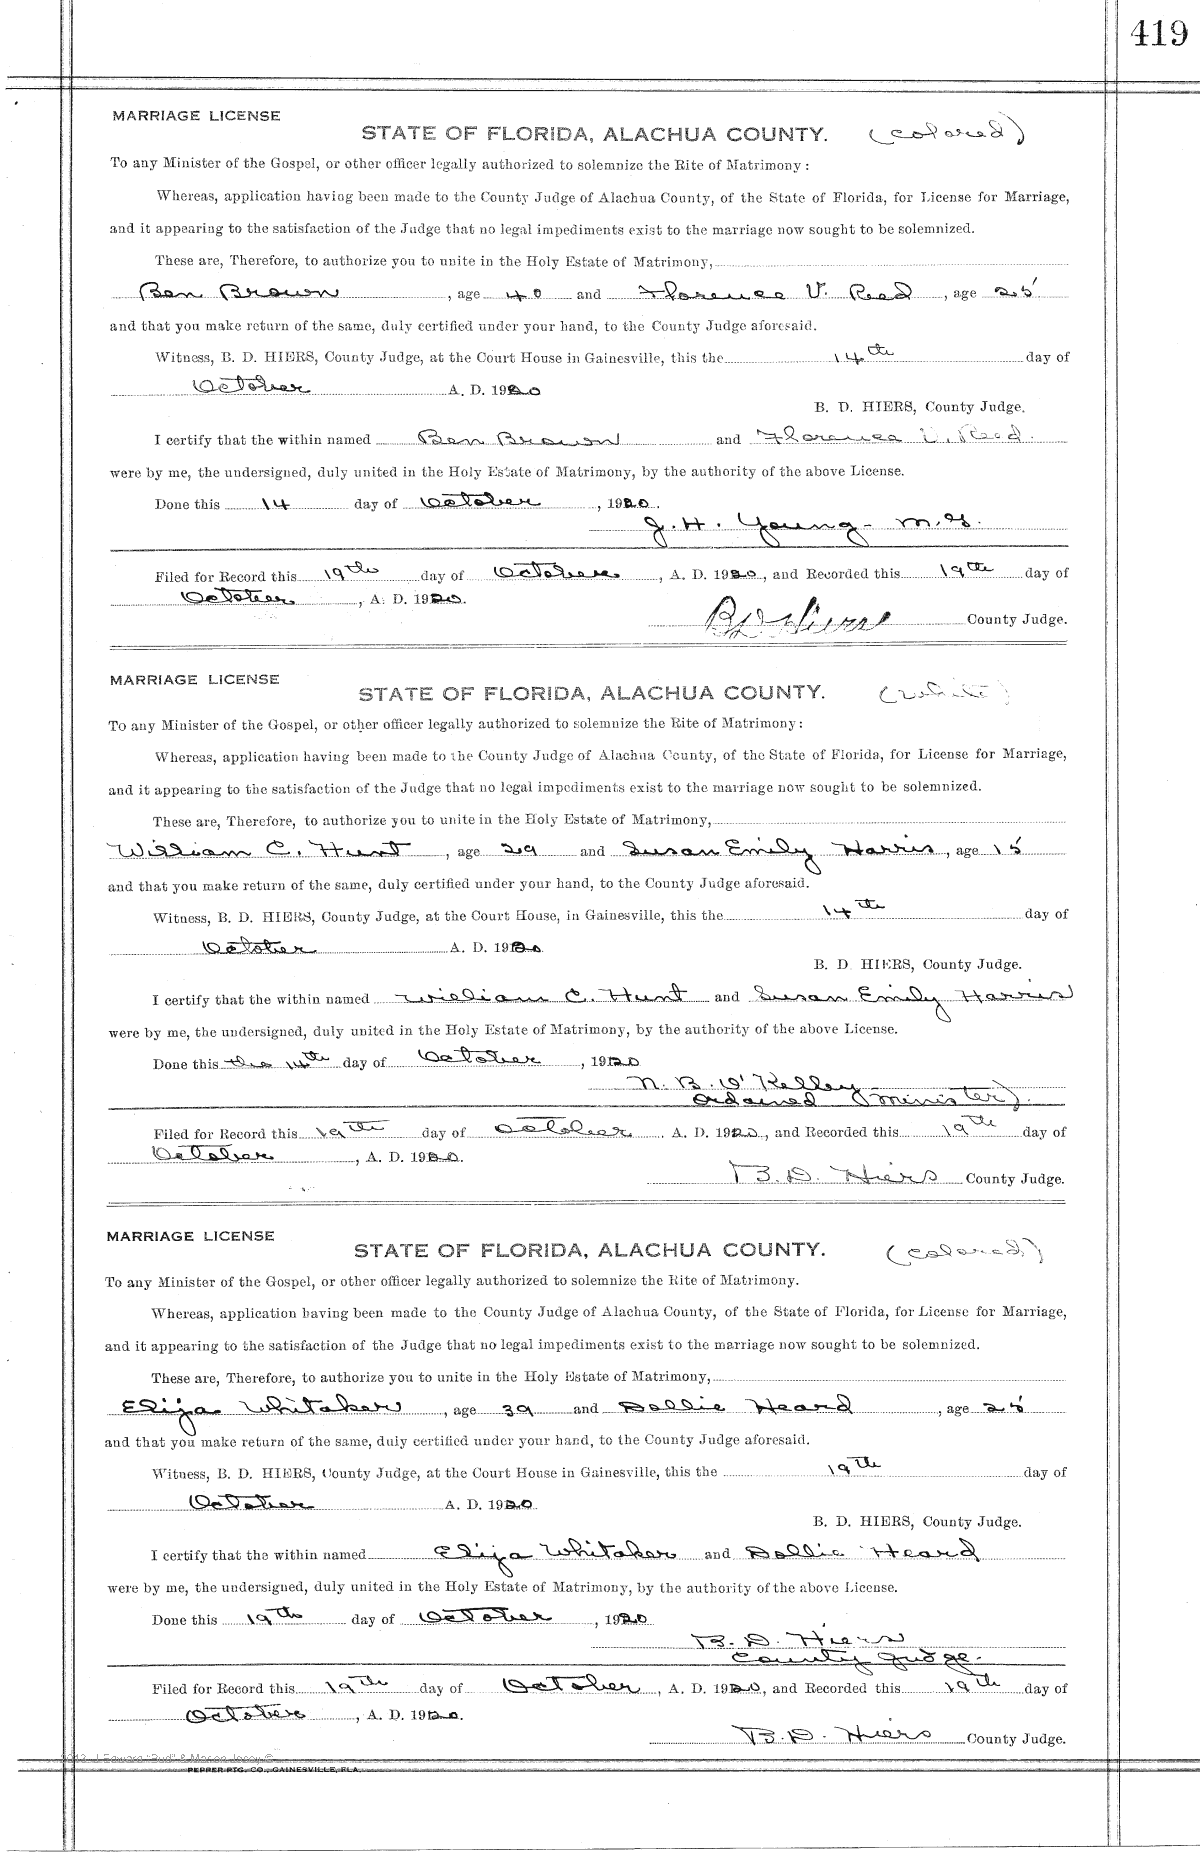 419
MARRIAGE LICENSE
STATE OF FLORIDA, ALACHUA COUNTY. (colored)
To any Minister of the Gospel, or other officer legally authorized to solemnize the Rite of Matrimony:
Whereas, application having been made to the County Judge of Alachua County, of the State of Florida, for License for Marriage,
and it appearing to the satisfaction of the Judge that no legal impediments exist to the marriage now sought to be solemnized.
These are, Therefore, to authorize you to unite in the Holy Estate of Matrimony,
Ben Brown, age 40 and Florence V. Reed, age 25
and that you make return of the same, duly certified under your hand, to the County Judge aforesaid.
Witness, B. D. HIERS, County Judge, at the Court House in Gainesville, this the 14th day of
October A. D. 1920
B. D. HIERS, County Judge.
I certify that the within named Ben Brown and Florence V. Reed.
were by me, the undersigned, duly united in the Holy Estate of Matrimony, by the authority of the above License.
Done this 14 day of October, 1920.
J. H. Young - M.G.
Filed for Record this 19th day of October, A. D. 1920, and Recorded this 19th day of
October, A. D. 1920.
B D Hiers County Judge.
MARRIAGE LICENSE
STATE OF FLORIDA, ALACHUA COUNTY. (white)
To any Minister of the Gospel, or other officer legally authorized to solemnize the Rite of Matrimony:
Whereas, application having been made to the County Judge of Alachua County, of the State of Florida, for License for Marriage,
and it appearing to the satisfaction of the Judge that no legal impediments exist to the marriage now sought to be solemnized.
These are, Therefore, to authorize you to unite in the Holy Estate of Matrimony,
William C. Hunt, age 29 and Susan Emily Harris, age 15
and that you make return of the same, duly certified under your hand, to the County Judge aforesaid.
Witness, B. D. HIERS, County Judge, at the Court House, in Gainesville, this the 14th day of
October A. D. 1920
B. D. HIERS, County Judge.
I certify that the within named William C. Hunt and Susan Emily Harris
were by me, the undersigned, duly united in the Holy Estate of Matrimony, by the authority of the above License.
Done this the 14th day of October, 1920
N. B. O'Kelley
Ordained (Minister).
Filed for Record this 19th day of October. A. D. 1920, and Recorded this 19th day of
October, A. D. 1920.
B. D. Hiers County Judge.
MARRIAGE LICENSE
STATE OF FLORIDA, ALACHUA COUNTY. (colored)
To any Minister of the Gospel, or other officer legally authorized to solemnize the Rite of Matrimony.
Whereas, application having been made to the County Judge of Alachua County, of the State of Florida, for License for Marriage,
and it appearing to the satisfaction of the Judge that no legal impediments exist to the marriage now sought to be solemnized.
These are, Therefore, to authorize you to unite in the Holy Estate of Matrimony,
Elija Whitaker, age 39 and Dollie Heard, age 25
and that you make return of the same, duly certified under your hand, to the County Judge aforesaid.
Witness, B. D. HIERS, County Judge, at the Court House in Gainesville, this the 19th day of
October A. D. 1920
B. D. HIERS, County Judge.
I certify that the within named Elija Whitaker and Dollie Heard
were by me, the undersigned, duly united in the Holy Estate of Matrimony, by the authority of the above License.
Done this 19th day of October, 1920
B. D. Hiers
County Judge.
Filed for Record this 19th day of October, A. D. 1920, and Recorded this 19th day of
October, A. D. 1920.
B. D. Hiers County Judge.
PEPPER PTG. CO., GAINESVILLE, FLA.